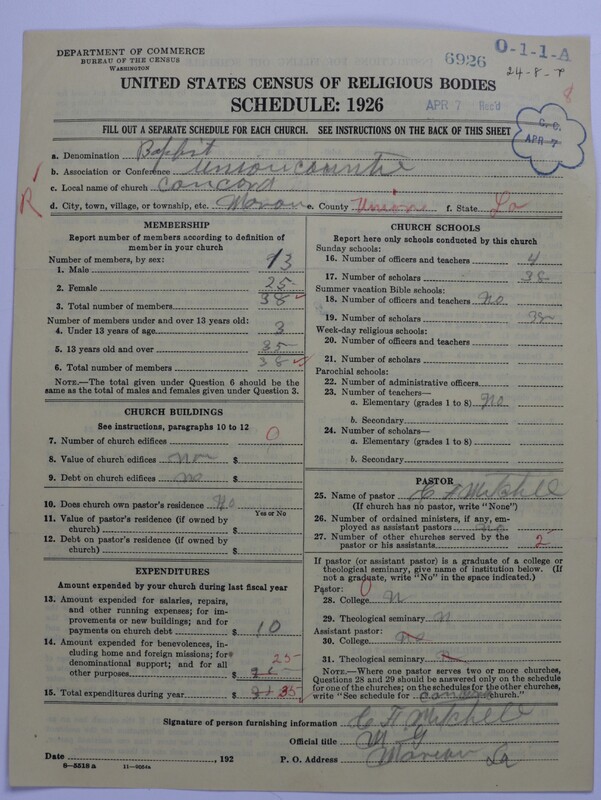 DEPARTMENT OF COMMERCE
BUREAU OF THE CENSUS
WASHINGTON
6926
O-1-1-A
24-8-
8
UNITED STATES CENSUS OF RELIGIOUS BODIES
SCHEDULE: 1926
APR 7 Rec'd
C. C.
APR 7
FILL OUT A SEPARATE SCHEDULE FOR EACH CHURCH. SEE INSTRUCTIONS ON THE BACK OF THIS SHEET
R
a. Denomination Baptist
b. Association or Conference
c. Local name of church Concord
d. City, town, village, or township, etc. e. County Union f. State La
MEMBERSHIP
Report number of members according to definition of
member in your church
Number of members, by sex:
1. Male 13
2. Female 25
3. Total number of members 38
Number of members under and over 13 years old:
4. Under 13 years of age 3
5. 13 years old and over 35
6. Total number of members 38
NOTE.—The total given under Question 6 should be
the same as the total of males and females given under Question 3.
CHURCH BUILDINGS
See instructions, paragraphs 10 to 12
7. Number of church edifices 0
8. Value of church edifices $
9. Debt on church edifices no $
10. Does church own pastor's residence No
Yes or No
11. Value of pastor's residence (if owned by
church) $
12. Debt on pastor's residence (if owned by
church) $
EXPENDITURES
Amount expended by your church during last fiscal year
13. Amount expended for salaries, repairs,
and other running expenses; for im-
provements or new buildings; and for
payments on church debt $ 10
14. Amount expended for benevolences, in-
cluding home and foreign missions; for
denominational support; and for all
other purposes $ 25
15. Total expenditures during year $ 35
CHURCH SCHOOLS
Report here only schools conducted by this church
Sunday schools:
16. Number of officers and teachers 4
17. Number of scholars 38
Summer vacation Bible schools:
18. Number of officers and teachers No
19. Number of scholars 38
Week-day religious schools:
20. Number of officers and teachers
21. Number of scholars
Parochial schools:
22. Number of administrative officers
23. Number of teachers—
a. Elementary (grades 1 to 8) No
b. Secondary
24. Number of scholars—
a. Elementary (grades 1 to 8)
b. Secondary
PASTOR
25. Name of pastor C H Mitchell
(If church has no pastor, write "None")
26. Number of ordained ministers, if any, em-
ployed as assistant pastors no
27. Number of other churches served by the
pastor or his assistants 2
If pastor (or assistant pastor) is a graduate of a college or
theological seminary, give name of institution below. (If
not a graduate, write "No" in the space indicated.)
Pastor: 0
28. College N
29. Theological seminary N
Assistant pastor:
30. College no
31. Theological seminary
NOTE.—Where one pastor serves two or more churches,
Questions 28 and 29 should be answered only on the schedule
for one of the churches; on the schedules for the other churches,
write "See schedule for church."
Signature of person furnishing information C H Mitchell
Official title
Date , 192 P. O. Address Marion La
8-5518 a